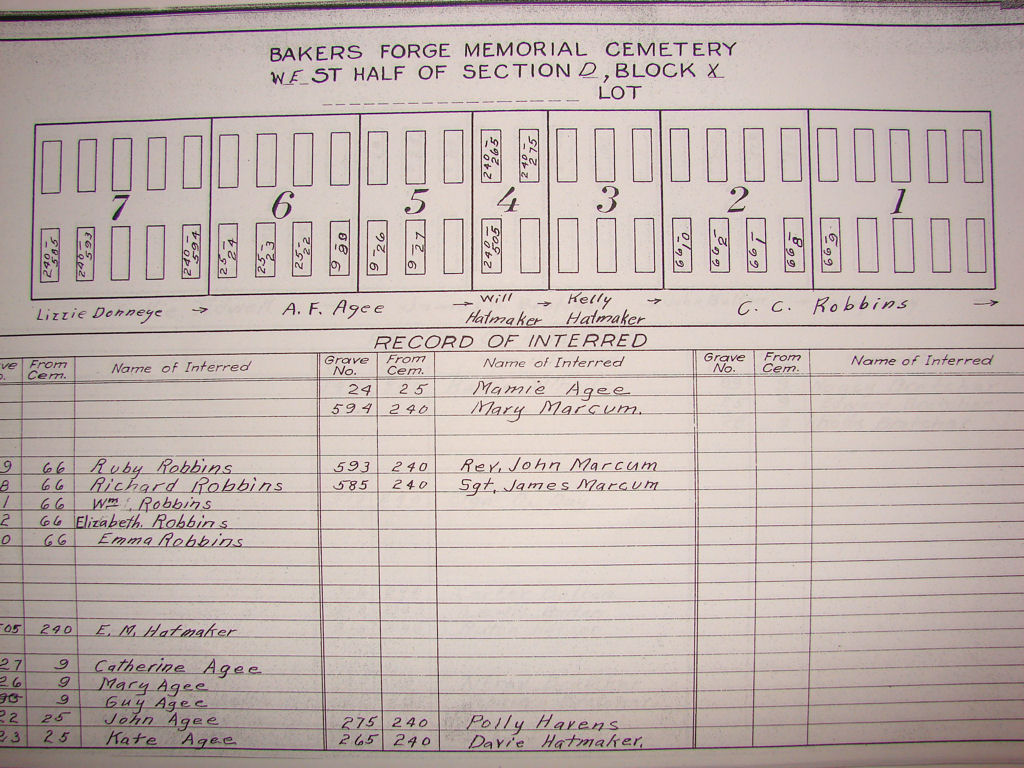 BAKERS FORGE MEMORIAL CEMETERY
WEST HALF OF SECTION D, BLOCK X
LOT
240-265 240-275
7 6 5 4 3 2 1
240-585 240-593 240-594 25-24 25-23 25-22 9-26 9-27 240-505 66-2 66-1 66-8 66-9
Lizzie Donneye → A. F. Agee → Will Hatmaker → Kelly Hatmaker → C. C. Robbins →
RECORD OF INTERRED
From Cem. Name of Interred Grave No. From Cem. Name of Interred Grave No. From Cem. Name of Interred
24 25 Mamie Agee
594 240 Mary Marcum.
9 66 Ruby Robbins 593 240 Rev. John Marcum
8 66 Richard Robbins 585 240 Sgt. James Marcum
1 66 Wm. Robbins
2 66 Elizabeth Robbins
0 66 Emma Robbins
05 240 E. M. Hatmaker
27 9 Catherine Agee
26 9 Mary Agee
9 Guy Agee
22 25 John Agee 275 240 Polly Havens
23 25 Kate Agee 265 240 Davie Hatmaker.